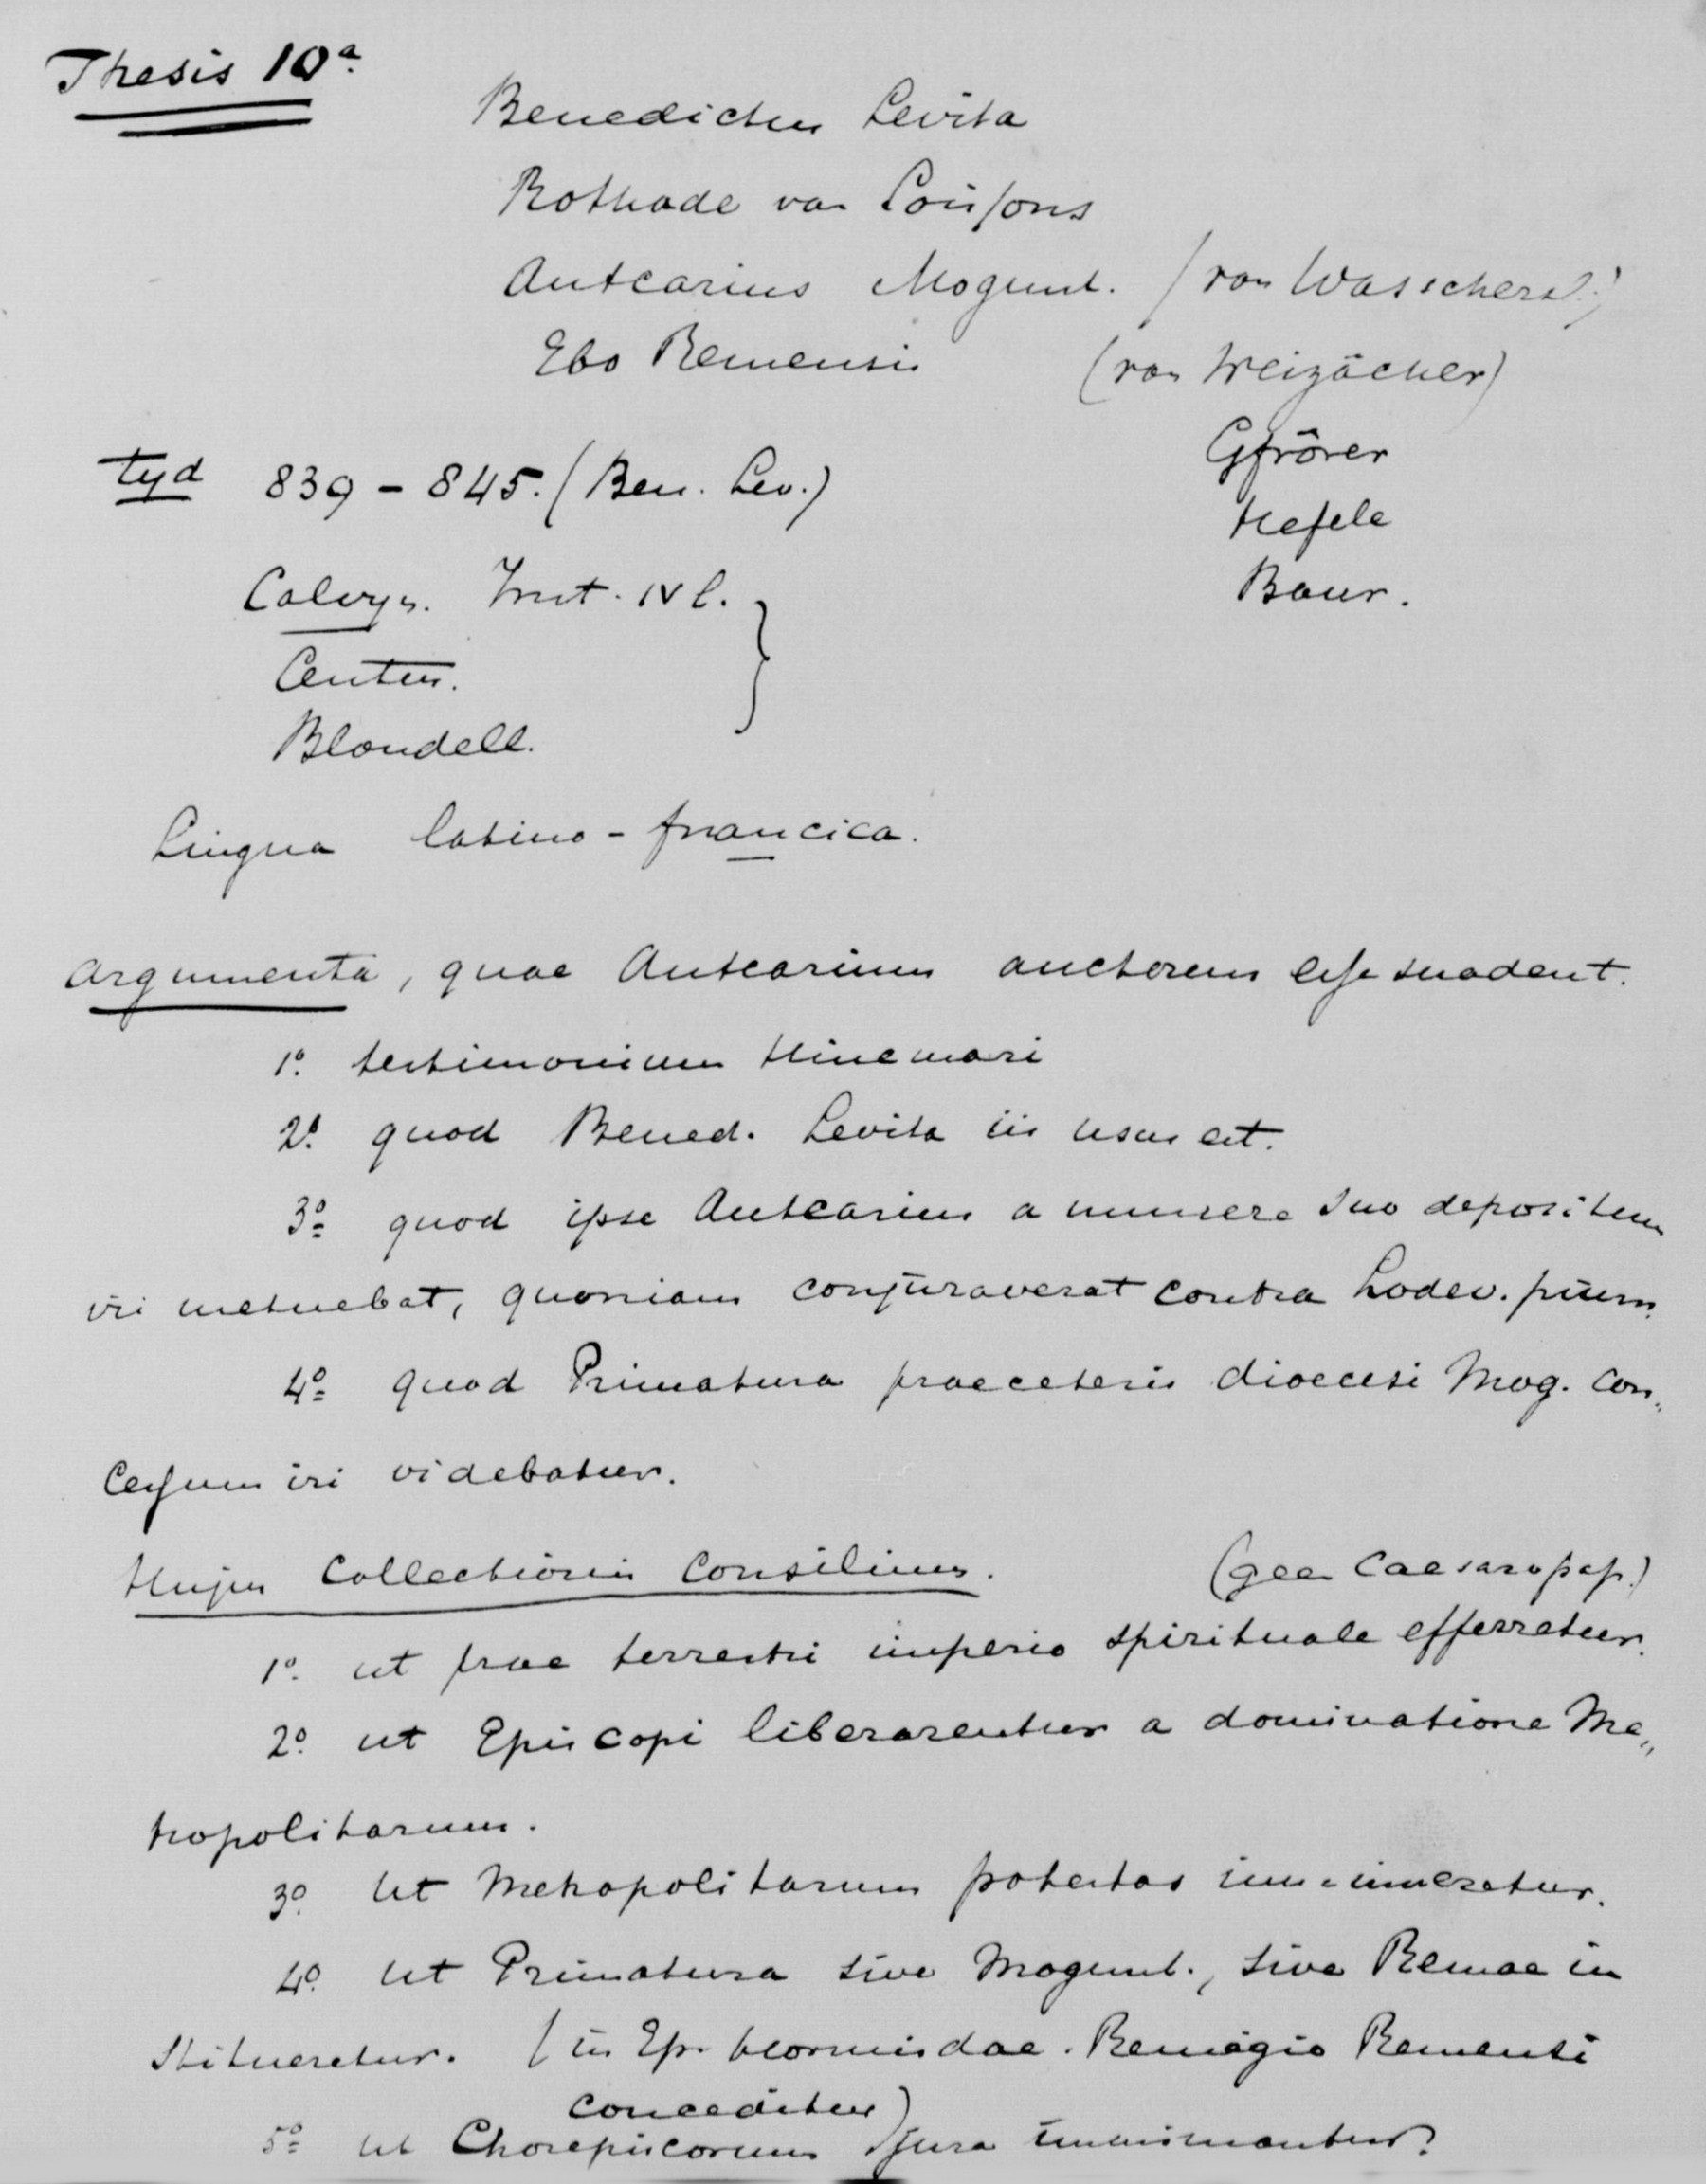 Thesis 10a.
Benedictus Levita
Rothade van Soissons
Autcarius Mogunt. (van Wasschersl.)
Ebo Remensis (van Weizäcker)
Gfrörer
tyd 839 - 845. (Ben. Lev.)
Hefele
Calvyn. Inst. IV l.
Baur.
Centur.
Blondell.
Lingua latino-francica.
Argumenta, quae Autcarium auctorem esse suadent.
1o. testimonium Hincmari
2o. quod Bened. Levita iis usus est.
3o. quod ipse Autcarius a munere suo depositum
iri metuebat, quoniam conjuraverat contra Lodew. pium.
4o. quod Primatura prae ceteris dioecesi Mog. con„
cessum iri videbatur.
Hujus Collectionis Consilium. (geen Caesaropap.)
1o. ut prae terrestri imperio spirituale efferretur.
2o. ut Episcopi liberarentur a dominatione Me„
tropolitarum.
3o. ut Metropolitarum potestas imminueretur.
4o. ut Primatura sive Mogunt., sive Remae in
stitueretur. (in Ep. Hormisdae. Remigio Remensi
conceditur)
5o. ut Chorepiscorum jura